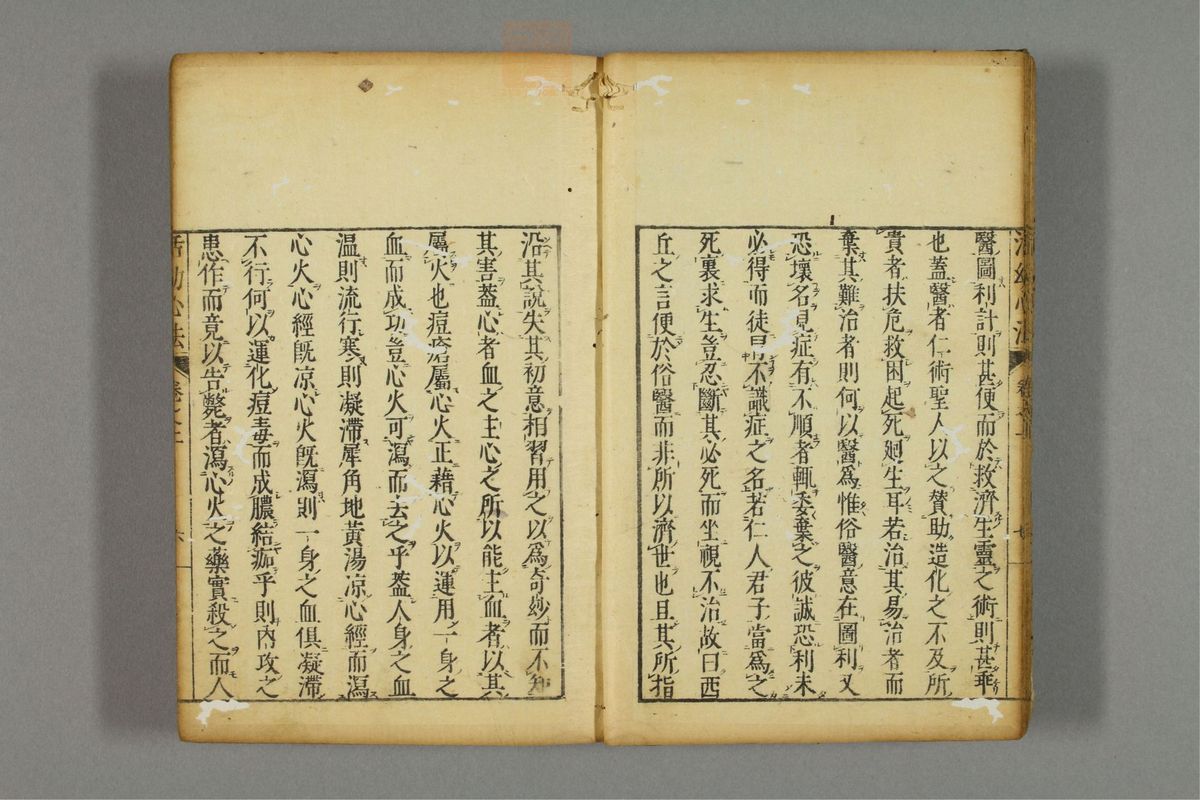 醫圖利計則甚便而於救濟生靈之術則甚乖
也蓋醫者仁術聖人以之賛助造化之不及所
貴者扶危救困起死廻生耳若治其易治者而
棄其難治者則何以醫爲惟俗醫意在圖利又
恐壞名見症有不順者輒委棄之彼誠恐利未
必得而徒冐不識症之名若仁人君子當爲之
死裏求生豈忍斷其必死而坐視不治故曰西
丘之言便於俗醫而非所以濟世也且其所指
沿其說失其初意相習用之以爲奇妙而不知
其害葢心者血之主心之所以能主血者以其
屬火也痘瘡屬心火正藉心火以運用一身之
血而成功豈心火可瀉而去之乎葢人身之血
温則流行寒則凝滯犀角地黃湯凉心經而瀉
心火心經旣凉心火旣瀉則一身之血俱凝滯
不行何以運化痘毒而成膿結痂乎則內攻之
患作而竟以告斃者瀉心火之藥實殺之而人
活幼心法
卷之